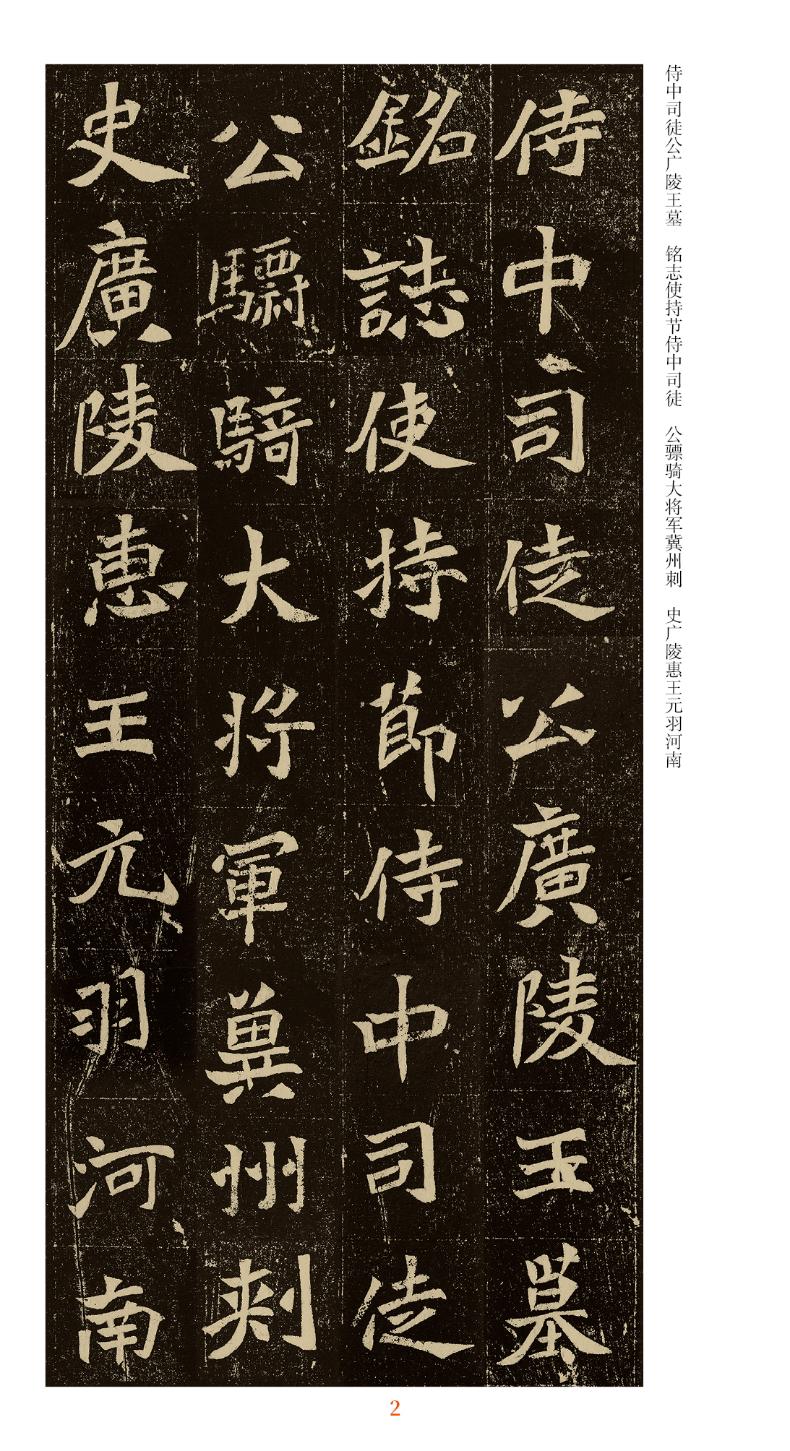 侍中司徒公廣陵王墓
銘誌使持節侍中司徒
公驃騎大将軍冀州刾
史廣陵惠王元羽河南
侍中司徒公广陵王墓　铭志使持节侍中司徒　公骠骑大将军冀州刺　史广陵惠王元羽河南
2